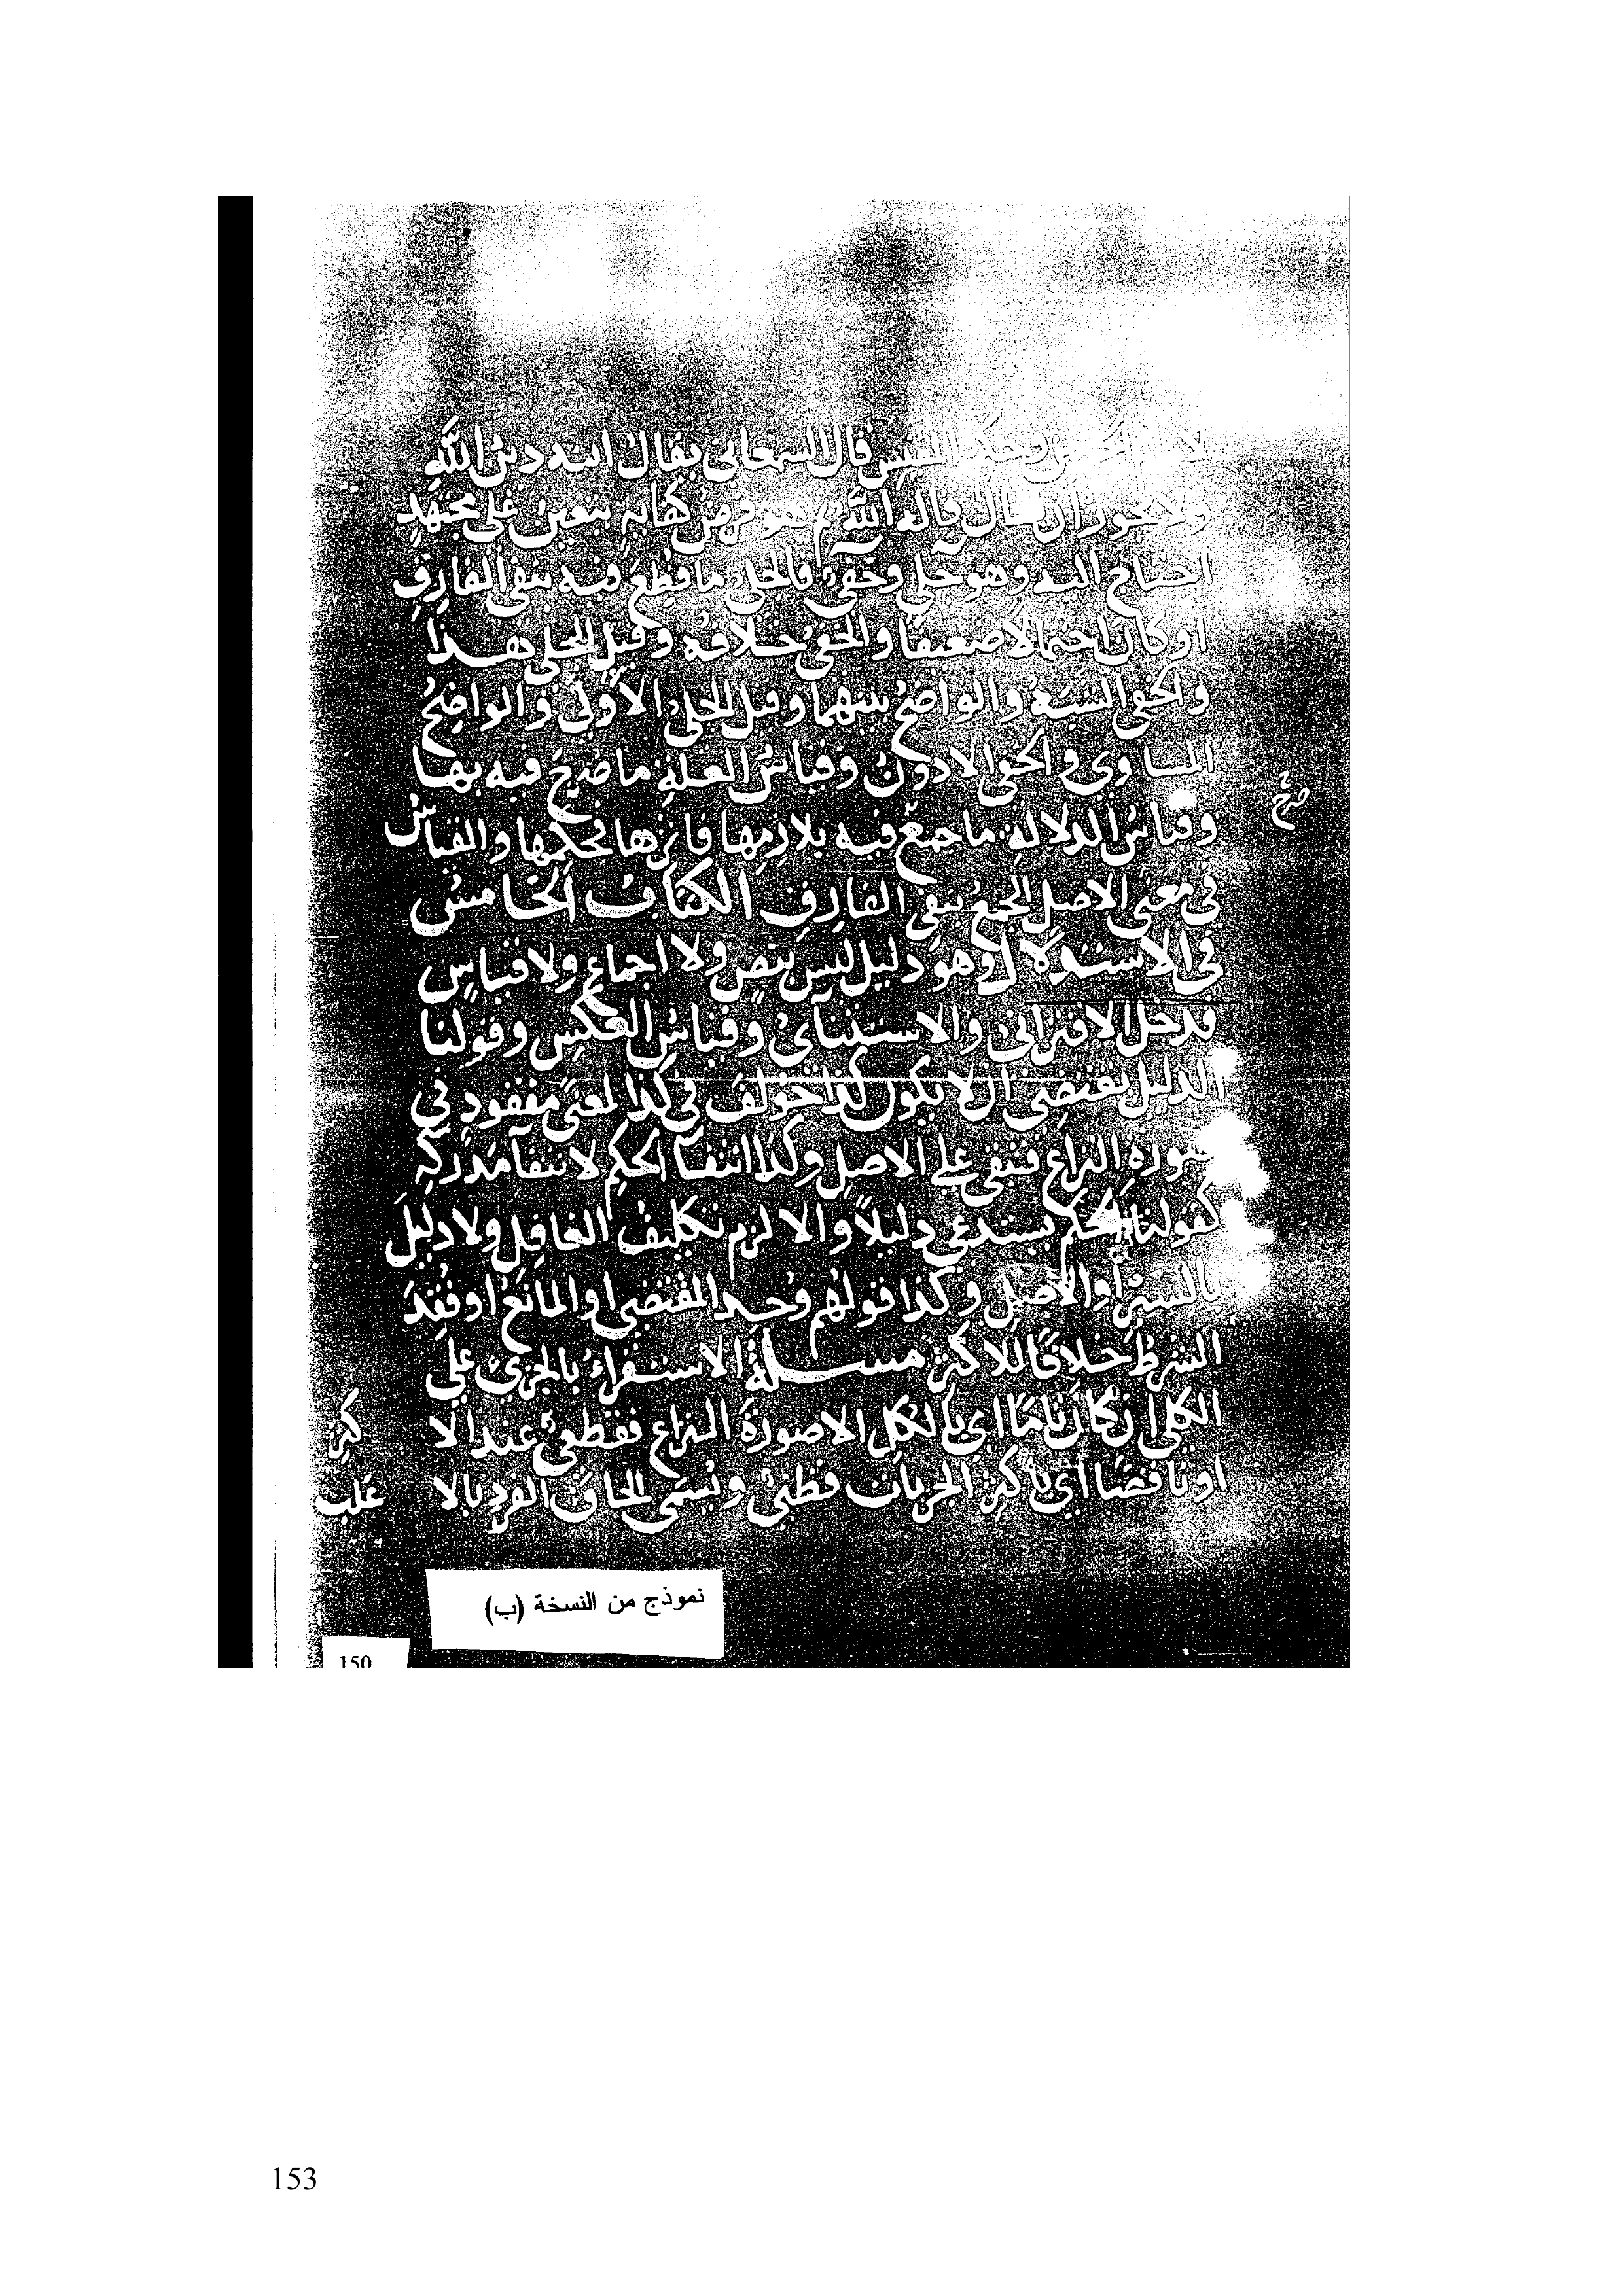 وحكم المقيس قال السمعاني يقال انه دين الله
ولا يجوز ان يقال قاله الله ثم هو فرض كفاية يتعين على مجتهد
احتاج اليه وهو جلي وخفي فالجلي ما قطع فيه بنفي الفارق
او كان احتمالا ضعيفا والخفي خلافه وقيل الجلي هذا
والخفي الشبه والواضح بينهما وقيل الجلي الاولى والواضح
المساوي والخفي الادون وقياس العلة ما صرح فيه بها
صح
وقياس الدلالة ما جمع فيه بلازمها فاثرها فحكمها والقياس
في معنى الاصل الجمع بنفي الفارق الكتاب الخامس
في الاستدلال وهو دليل ليس بنص ولا اجماع ولا قياس
فدخل الاقتراني والاستثنائي وقياس العكس وقولنا
الدليل يقتضي الا يكون كذا خولف في كذا لمعنى مفقود في
صورة النزاع فتبقى على الاصل وكذا انتفا الحكم لانتفا مدركه
كقولنا الحكم يستدعي دليلا والا لزم تكليف الغافل ولا دليل
بالسبر او الاصل وكذا قولهم وجد المقتضي او المانع او فقد
الشرط خلافا للاكثر مسـلة الاستقراء بالجزئي على
الكلي ان كان تاما اي بالكل الا صورة النزاع فقطعي عند الا كثر
او ناقصا اي باكثر الجزيات فظني ويسمى الحاق الفرد بالا غلب
نموذج من النسخة (ب)
150
153